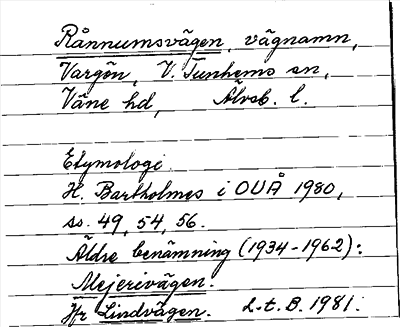 Rånnumsvägen, vägnamn,
Vargön, V. Tunhems sn,
Väne hd, Älvsb. l.
Etymologi.
H. Bartholmes i OUÅ 1980,
ss. 49, 54, 56.
Äldre benämning (1934-1962):
Mejerivägen.
Jfr Lindvägen. L-t. B. 1981.